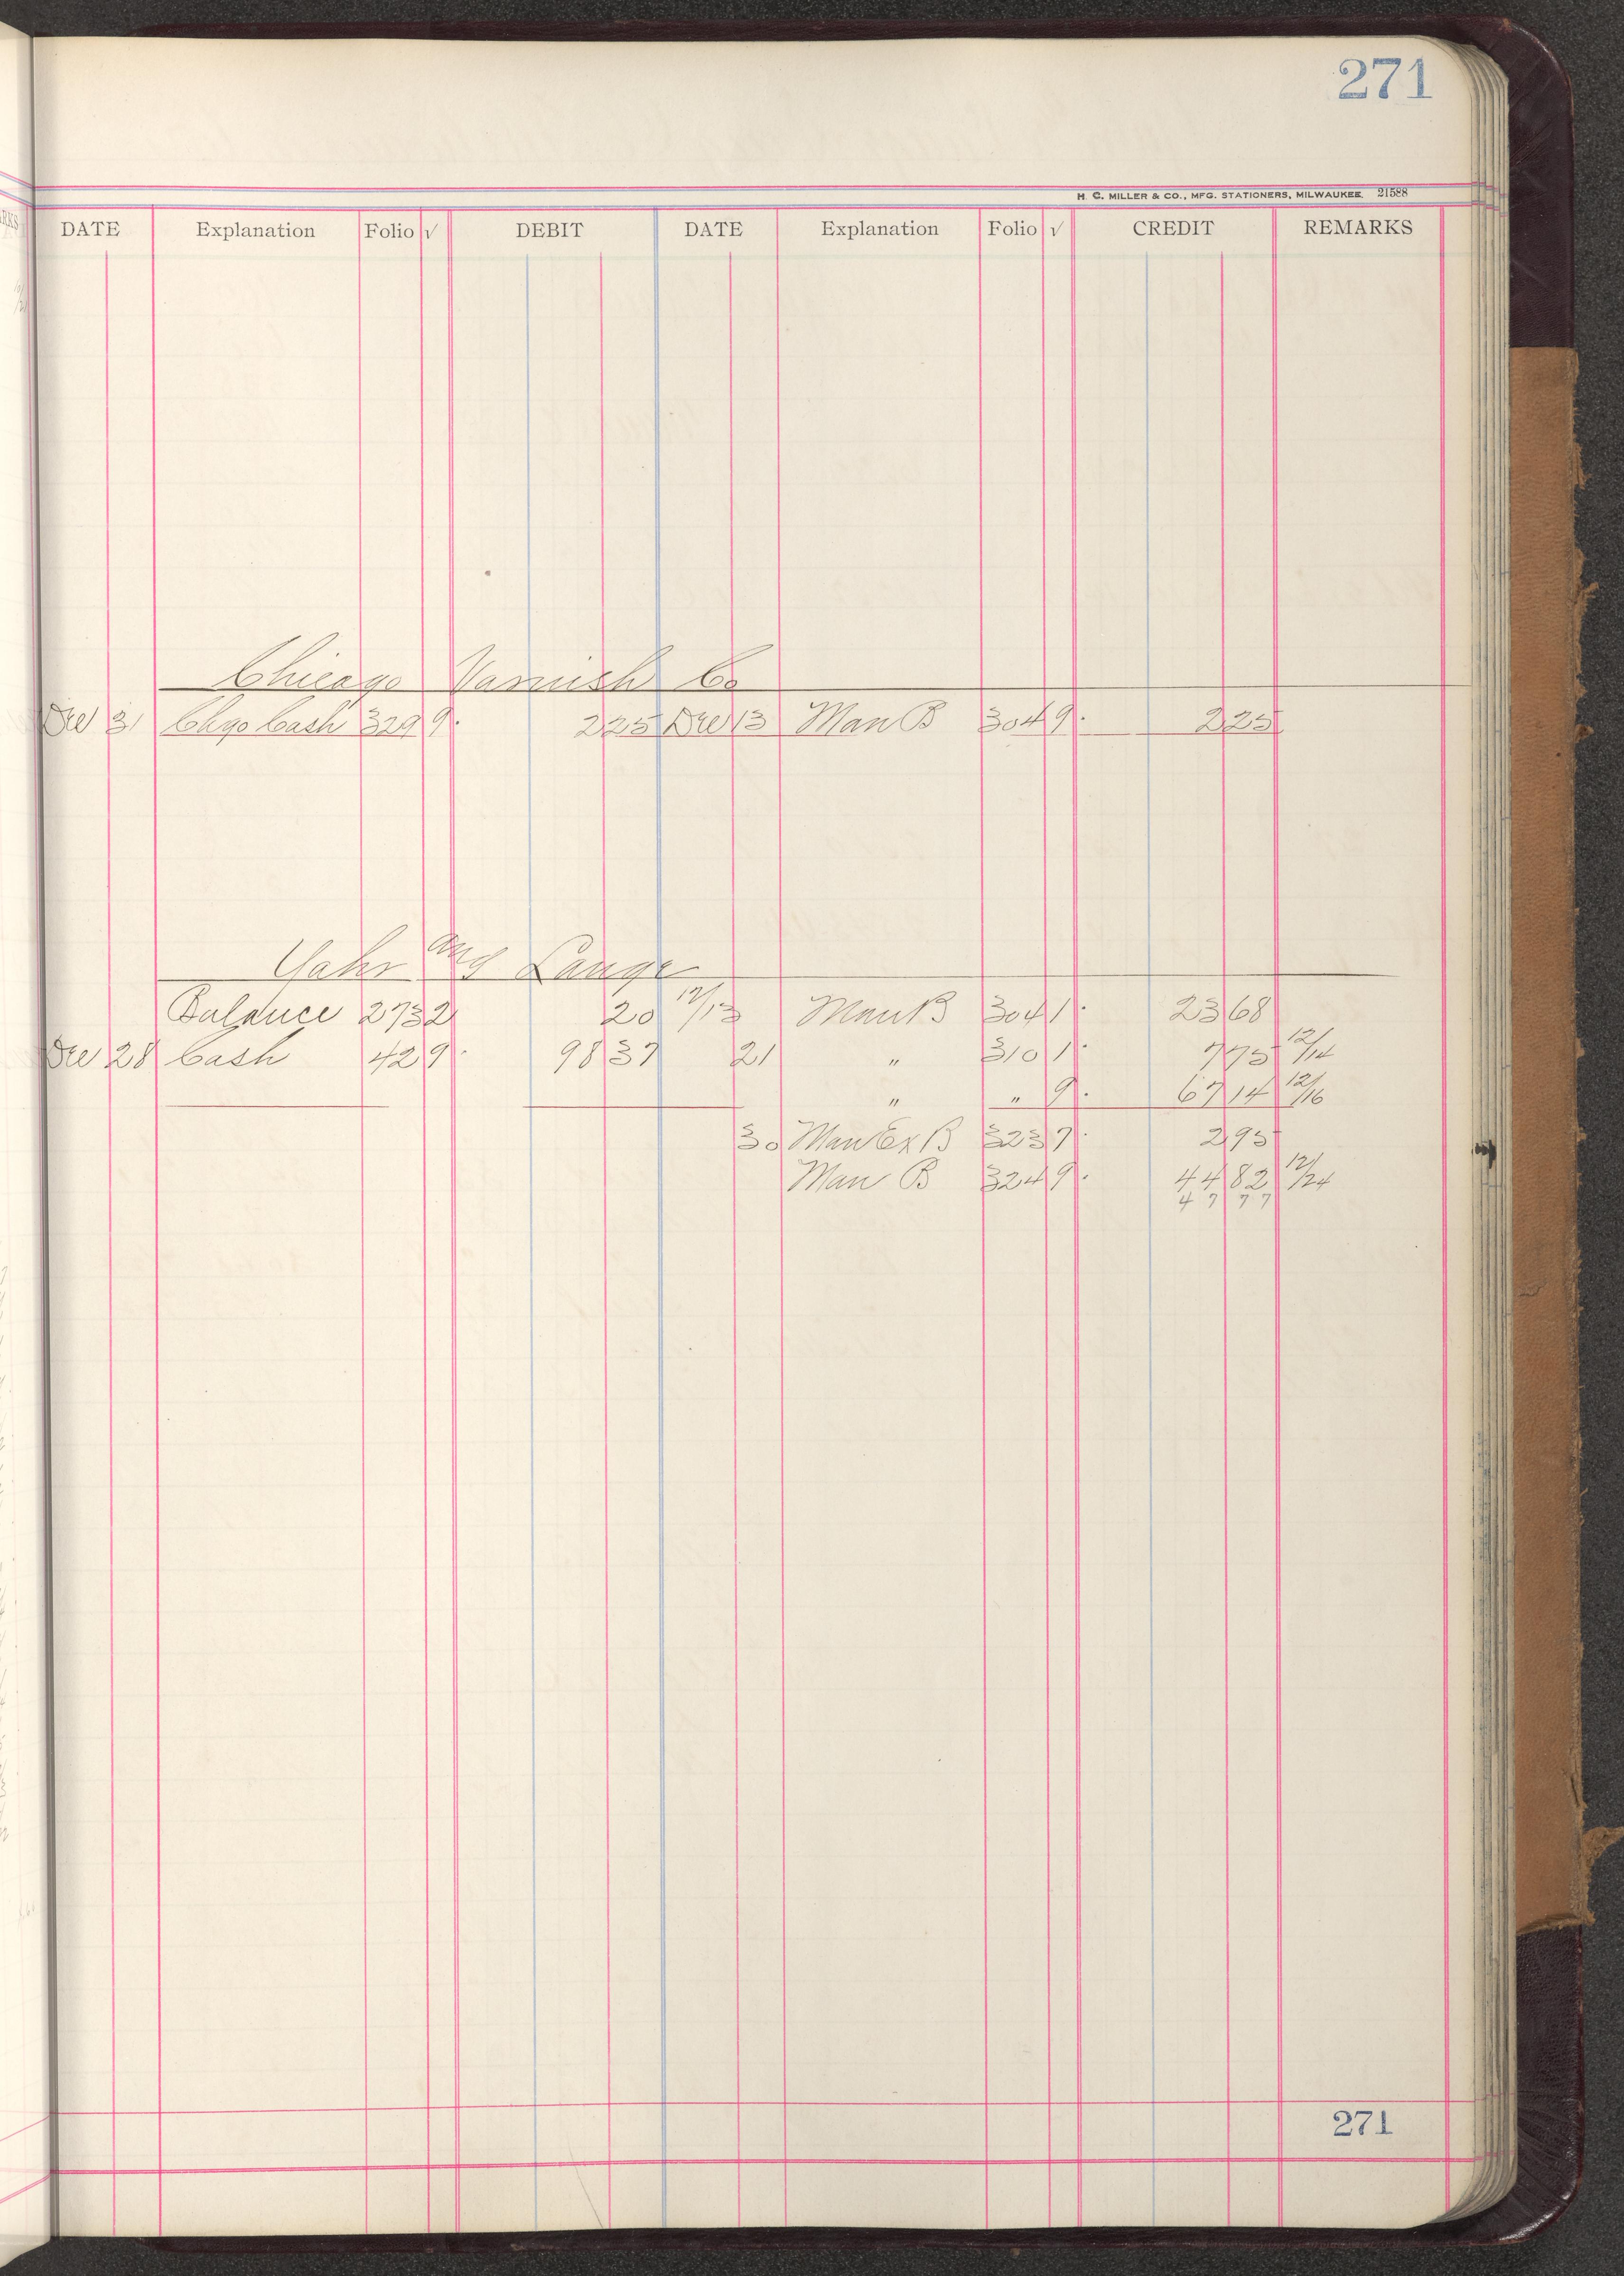 271
H. C. MILLER & CO., MFG. STATIONERS, MILWAUKEE. 21588
DATE Explanation Folio √ DEBIT DATE Explanation Folio √ CREDIT REMARKS
Chicago Varnish Co
Dec 31 Chgo Cash 329 9 2 25 Dec 13 Man B 304 9 2 25
Yahr and Lange
Balance 273 2 20 12/13 Man B 304 1 23 68
Dec 28 Cash 42 9 98 37 21 " 310 1 7 75 12/14
" " 9 67 14 12/16
30 Man Ex B 323 7 2 95
Man B 324 9 44 82 12/24
47 77
271